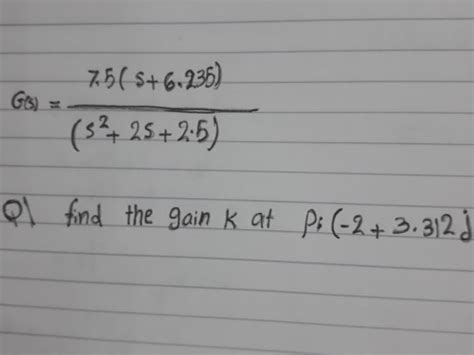 G(s) = 7.5(s+6.235)
(s²+2s+2.5)
Q1 find the gain k at P: (-2+3.312j